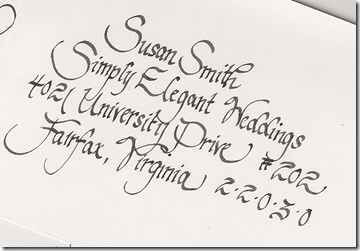 Susan Smith
Simply Elegant Weddings
4021 University Drive #202
Fairfax, Virginia 2·2·0·3·0